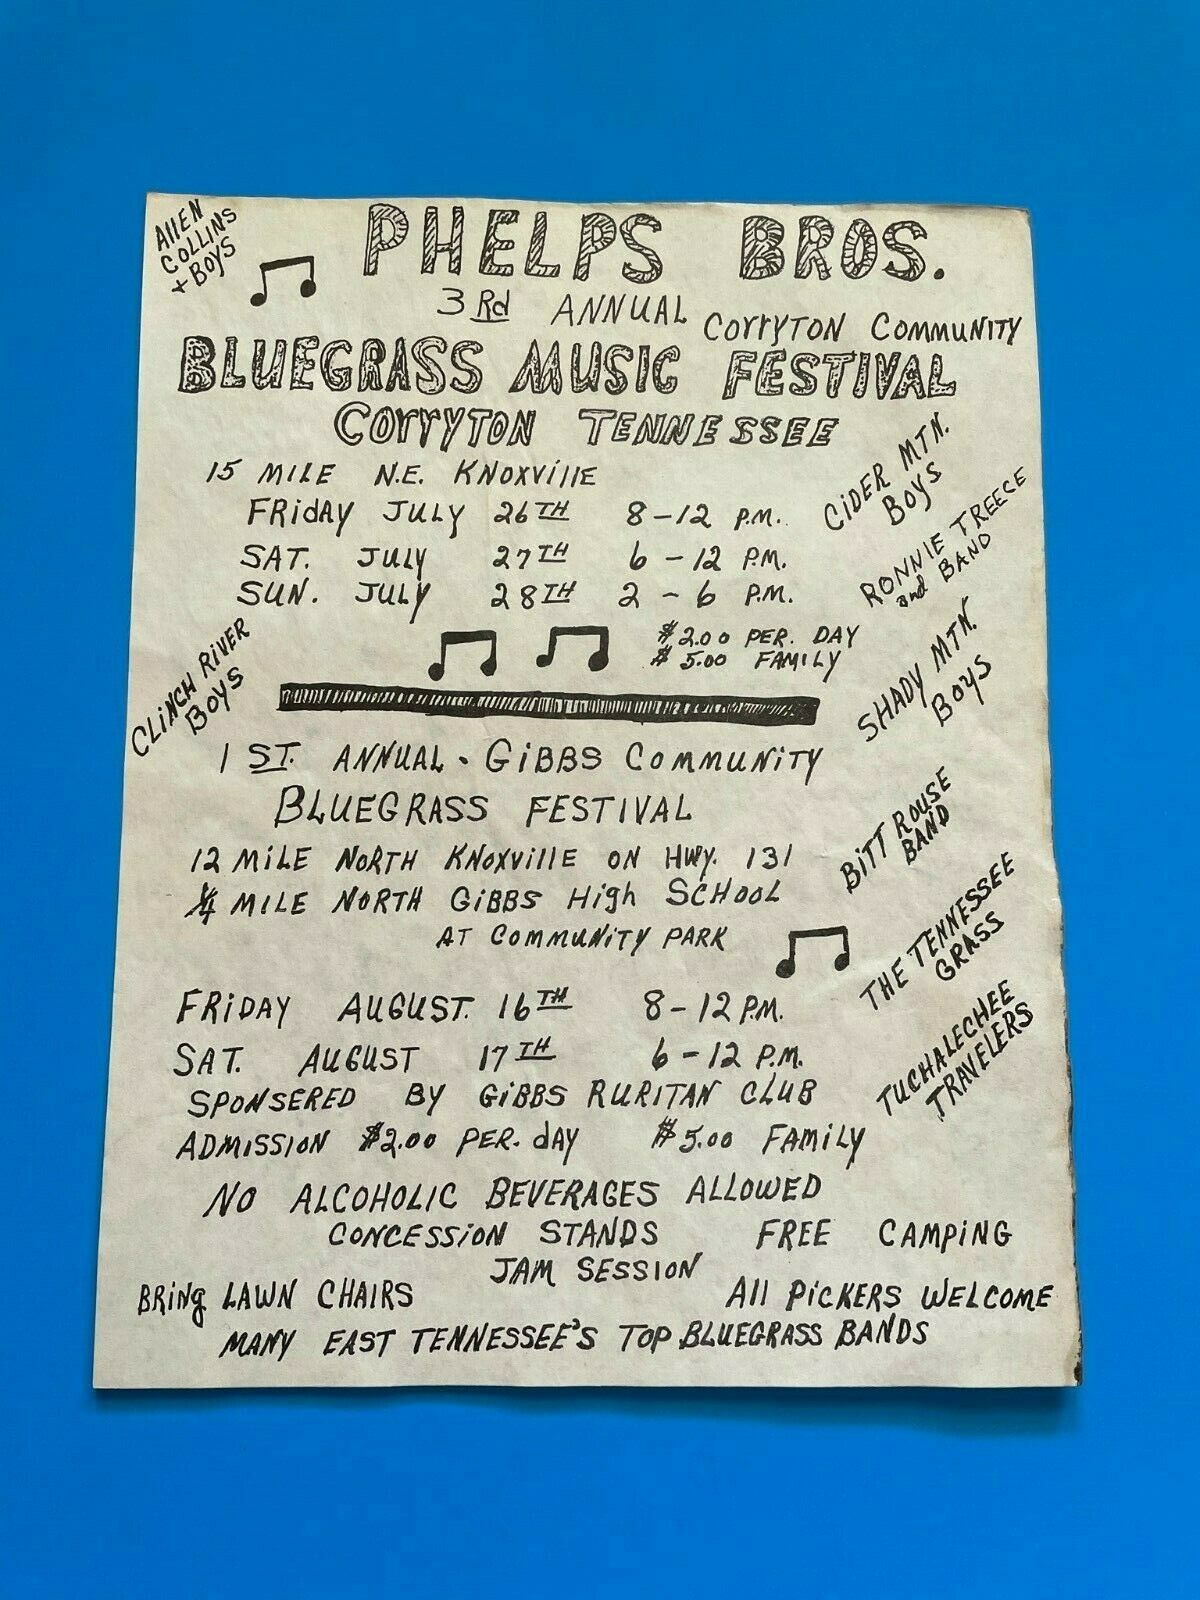 Allen
Collins
+ Boys
PHELPS BROS.
3Rd ANNUAL Corryton Community
BLUEGRASS MUSIC FESTIVAL
Corryton TENNESSEE
15 MILE N.E. KNOXVILLE
FRIDAY JULY 26TH 8-12 P.M.
SAT. JULY 27TH 6-12 P.M.
SUN. JULY 28TH 2-6 P.M.
$2.00 PER. DAY
$5.00 FAMILY
CIDER MTN.
BOYS
RONNIE TREECE
and BAND
SHADY MTN.
BOYS
CLINCH RIVER
BOYS
1ST. ANNUAL - GIBBS COMMUNITY
BLUEGRASS FESTIVAL
12 MILE NORTH KNOXVILLE ON HWY. 131
1/4 MILE NORTH GIBBS High SCHOOL
AT COMMUNITY PARK
BITT ROUSE
BAND
THE TENNESSEE
GRASS
TUCHALECHEE
TRAVELERS
FRIDAY AUGUST. 16TH 8-12 P.M.
SAT. AUGUST 17TH 6-12 P.M.
SPONSERED BY GIBBS RURITAN CLUB
ADMISSION $2.00 PER. day $5.00 FAMILY
NO ALCOHOLIC BEVERAGES ALLOWED
CONCESSION STANDS FREE CAMPING
JAM SESSION
BRing LAWN CHAIRS All PICKERS WELCOME
MANY EAST TENNESSEE'S TOP BLUEGRASS BANDS